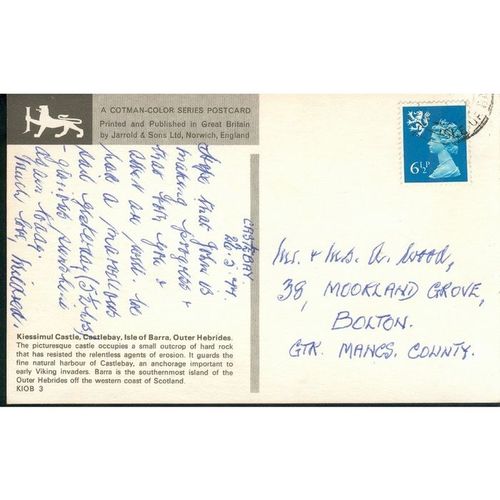 A COTMAN-COLOR SERIES POSTCARD
Printed and Published in Great Britain
by Jarrold & Sons Ltd, Norwich, England
6½P
CASTLEBAY.
Hope that John is
making progress &
that you &
are well. We
had a marvellous
glorious sunshine
again today.
Much love, Mildred.
Mr. & Mrs. A. Wood,
38, MOORLAND GROVE,
BOLTON.
GTR. MANCS. COUNTY.
Kiessimul Castle, Castlebay, Isle of Barra, Outer Hebrides.
The picturesque castle occupies a small outcrop of hard rock
that has resisted the relentless agents of erosion. It guards the
fine natural harbour of Castlebay, an anchorage important to
early Viking invaders. Barra is the southernmost island of the
Outer Hebrides off the western coast of Scotland.
KIOB 3